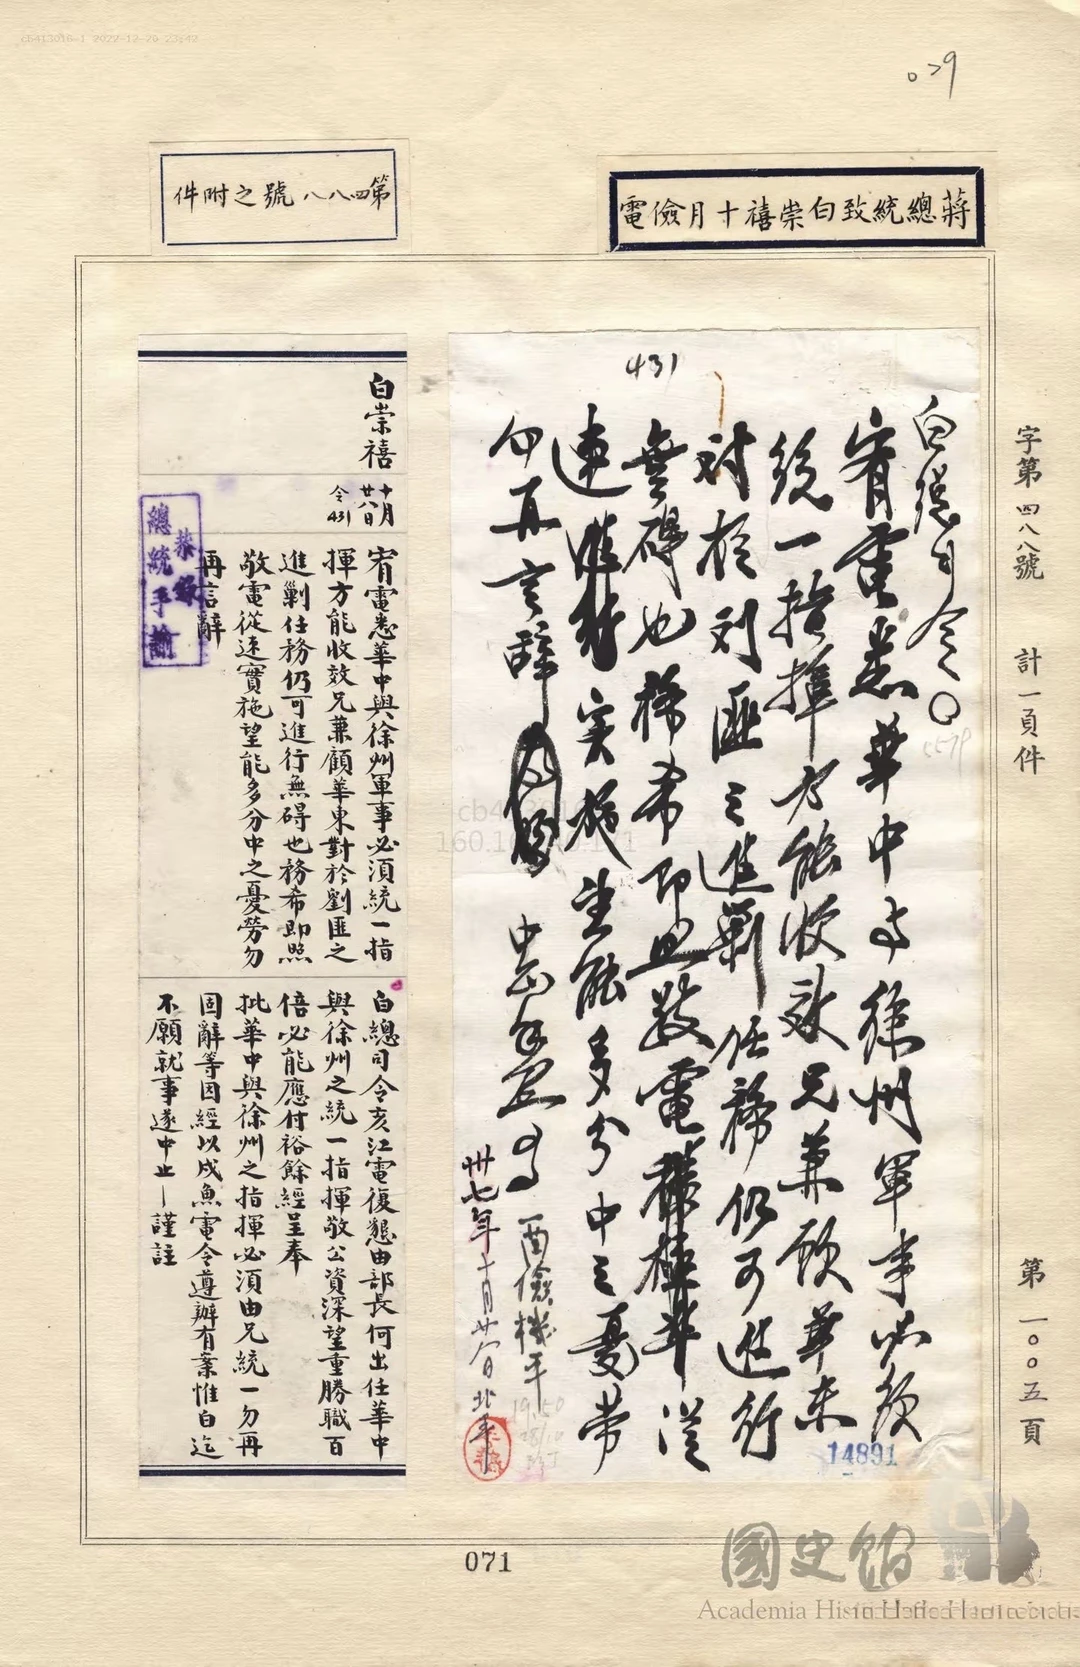 cb413016-1 2022-12-20 23:42
029
蔣總統致白崇禧十月儉電
第四八八號之附件
字第四八八號
計一頁件
第一〇〇五頁
431
白總司令〇
宥電悉華中與徐州軍事必須
統一指揮方能收效兄兼顧華東
對於刘匪之進剿任務仍可進行
無碍也務希即照敬電 從
速 实施望能多分中之憂勞
勿再言辭 中正手啟
酉儉機平
卅七年十月廿八日北平
14891
5579
19.50
28/10
白崇禧
十月
廿八日
令431
宥電悉華中與徐州軍事必須統一指
揮方能收效兄兼顧華東對於劉匪之
進剿任務仍可進行無碍也務希即照
敬電從速實施望能多分中之憂勞勿
再言辭
恭錄
總統手諭
白總司令亥江電復懇由部長何出任華中
與徐州之統一指揮敬公資深望重勝職百
倍必能應付裕餘經呈奉
批華中與徐州之指揮必須由兄統一勿再
固辭等因經以戌魚電令遵辦有案惟白迄
不願就事遂中止—謹註
cb413016
071
國史館
Academia Historica